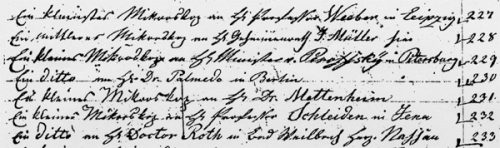 Ein kleinstes Mikroskop an H: Professor Weeber in Leipzig 227
Ein mittleres Mikroskop an H: Geheimrath J. Müller hier 228
Ein kleines Mikroskop an H: Minister v. in Petersburg 229
Ein ditto an H: Dr. Palmedo in Berlin 230
Ein kleines Mikroskop an H: Dr. Mettenheim 231
Ein kleines Mikroskop an H: Professor Schleiden in Jena 232
Ein ditto an H: Doctor Roth in Bad Weilbach Herz: Nassau 233